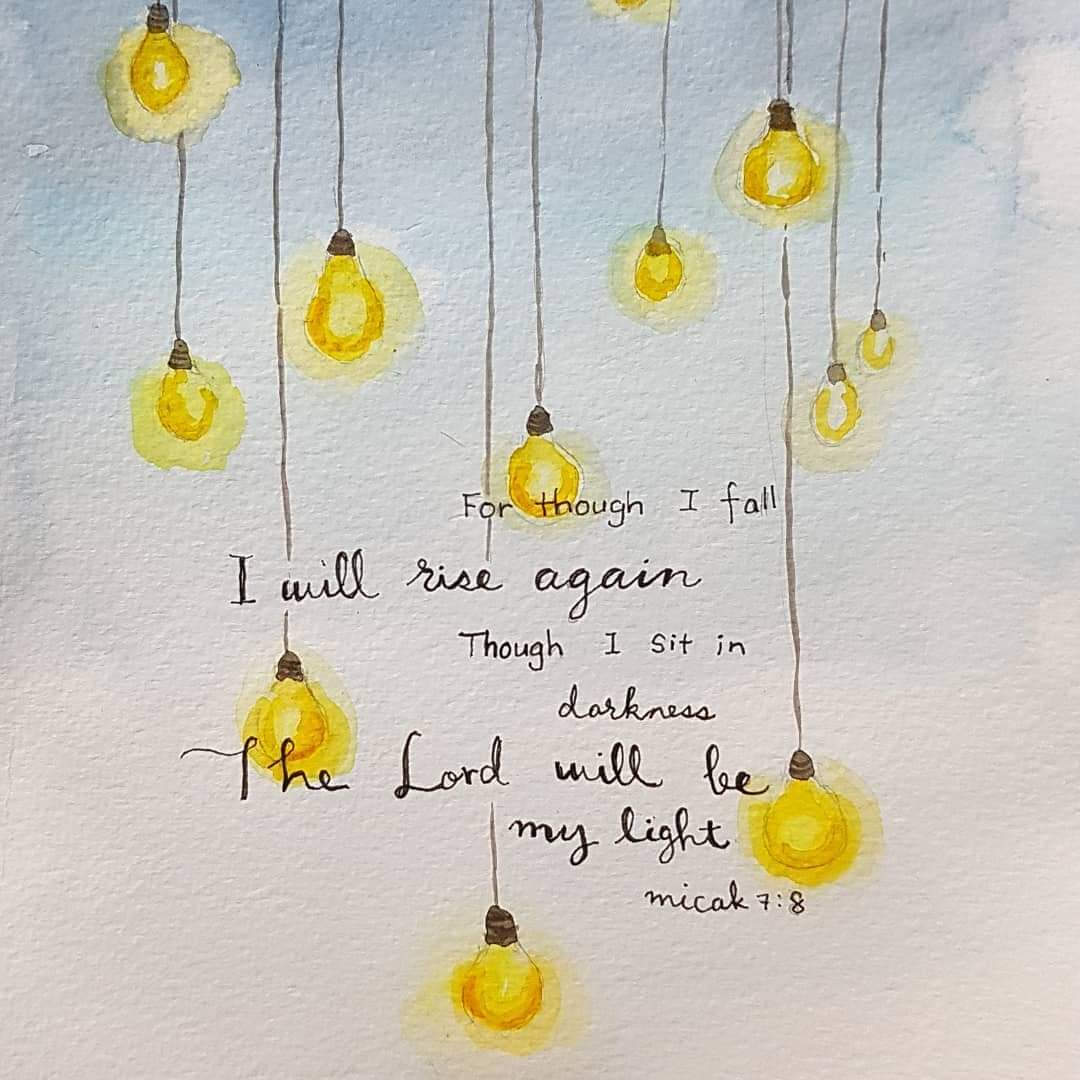 For though I fall
I will rise again
Though I sit in
darkness
The Lord will be
my light
micah 7:8